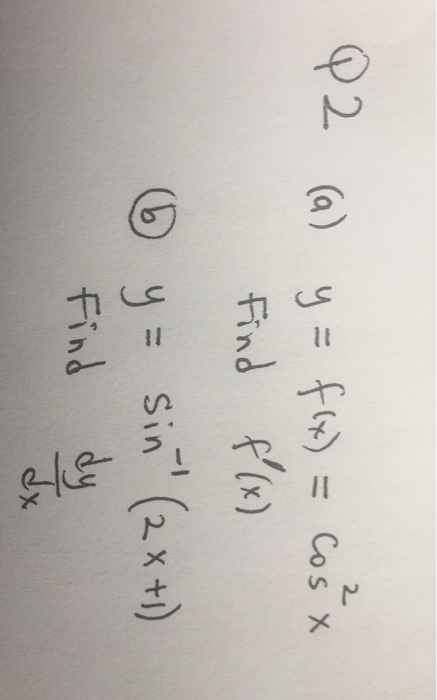 Q2 (a) y = f(x) = cos² x
Find f'(x)
(b) y = sin⁻¹ (2x+1)
Find dy/dx